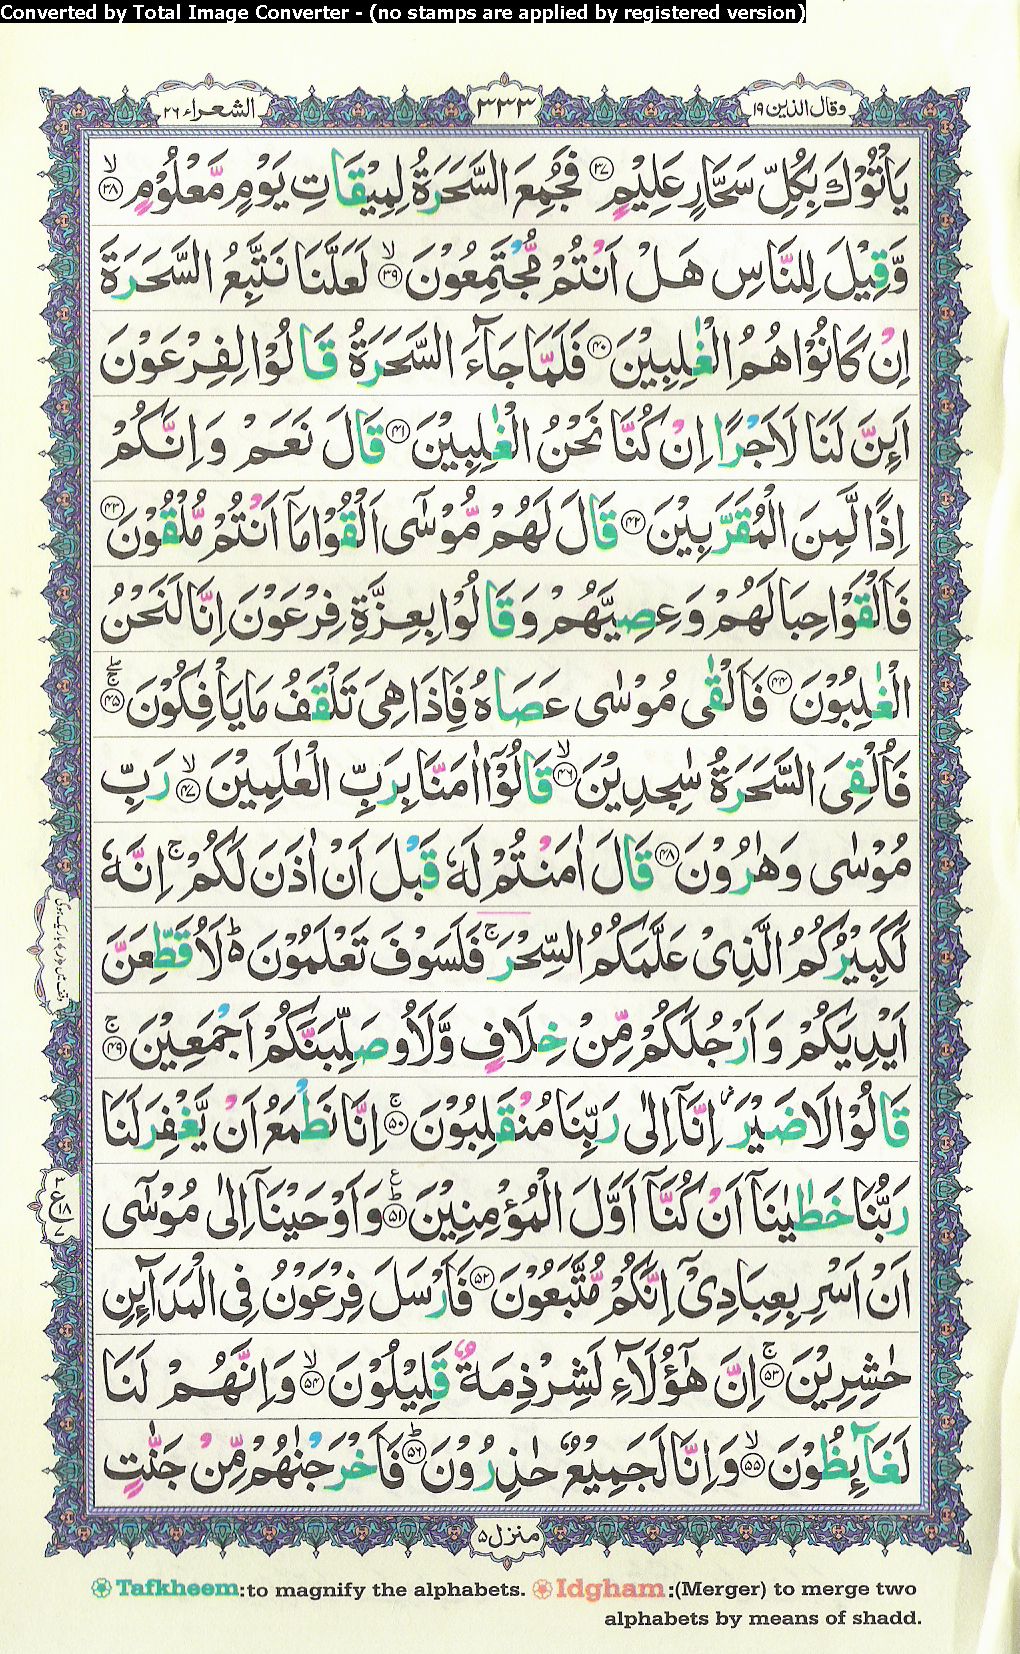 Converted by Total Image Converter - (no stamps are applied by registered version)
وقال الذین ۱۹ ۳۳۳ الشعراء ۲۶
يَاۡتُوۡكَ بِكُلِّ سَحَّارٍ عَلِيۡمٍ ۳۷ فَجُمِعَ السَّحَرَةُ لِمِيۡقَاتِ يَوۡمٍ مَّعۡلُوۡمٍ ۙ ۳۸
وَّقِيۡلَ لِلنَّاسِ هَلۡ اَنۡتُمۡ مُّجۡتَمِعُوۡنَ ۙ ۳۹ لَعَلَّنَا نَتَّبِعُ السَّحَرَةَ
اِنۡ كَانُوۡا هُمُ الۡغٰلِبِيۡنَ ۴۰ فَلَمَّا جَآءَ السَّحَرَةُ قَالُوۡا لِفِرۡعَوۡنَ
اَئِنَّ لَنَا لَاَجۡرًا اِنۡ كُنَّا نَحۡنُ الۡغٰلِبِيۡنَ ۴۱ قَالَ نَعَمۡ وَاِنَّكُمۡ
اِذًا لَّمِنَ الۡمُقَرَّبِيۡنَ ۴۲ قَالَ لَهُمۡ مُّوۡسٰٓى اَلۡقُوۡا مَاۤ اَنۡتُمۡ مُّلۡقُوۡنَ ۴۳
فَاَلۡقَوۡا حِبَالَهُمۡ وَعِصِيَّهُمۡ وَقَالُوۡا بِعِزَّةِ فِرۡعَوۡنَ اِنَّا لَنَحۡنُ
الۡغٰلِبُوۡنَ ۴۴ فَاَلۡقٰى مُوۡسٰى عَصَاهُ فَاِذَا هِىَ تَلۡقَفُ مَا يَاۡفِكُوۡنَ ۚۖ ۴۵
فَاُلۡقِىَ السَّحَرَةُ سٰجِدِيۡنَ ۙ ۴۶ قَالُوۡۤا اٰمَنَّا بِرَبِّ الۡعٰلَمِيۡنَ ۙ ۴۷ رَبِّ
مُوۡسٰى وَهٰرُوۡنَ ۴۸ قَالَ اٰمَنۡتُمۡ لَهٗ قَبۡلَ اَنۡ اٰذَنَ لَكُمۡ ۚ اِنَّهٗ
لَكَبِيۡرُكُمُ الَّذِىۡ عَلَّمَكُمُ السِّحۡرَ ۚ فَلَسَوۡفَ تَعۡلَمُوۡنَ ؕ لَاُقَطِّعَنَّ
اَيۡدِيَكُمۡ وَاَرۡجُلَكُمۡ مِّنۡ خِلَافٍ وَّلَاُوصَلِّبَنَّكُمۡ اَجۡمَعِيۡنَ ۚ ۴۹
قَالُوۡا لَا ضَيۡرَ ز اِنَّاۤ اِلٰى رَبِّنَا مُنۡقَلِبُوۡنَ ۚ ۵۰ اِنَّا نَطۡمَعُ اَنۡ يَّغۡفِرَ لَنَا
رَبُّنَا خَطٰيٰنَاۤ اَنۡ كُنَّاۤ اَوَّلَ الۡمُؤۡمِنِيۡنَ ؕ ۵۱ ع وَاَوۡحَيۡنَاۤ اِلٰى مُوۡسٰٓى
اَنۡ اَسۡرِ بِعِبَادِىۡۤ اِنَّكُمۡ مُّتَّبَعُوۡنَ ۵۲ فَاَرۡسَلَ فِرۡعَوۡنُ فِى الۡمَدَآئِنِ
حٰشِرِيۡنَ ۚ ۵۳ اِنَّ هٰٓؤُلَآءِ لَشِرۡذِمَةٌ قَلِيۡلُوۡنَ ۙ ۵۴ وَاِنَّهُمۡ لَنَا
لَغَآئِظُوۡنَ ۙ ۵۵ وَاِنَّا لَجَمِيۡعٌ حٰذِرُوۡنَ ؕ ۵۶ فَاَخۡرَجۡنٰهُمۡ مِّنۡ جَنّٰتٍ
منزل ۵
Tafkheem:to magnify the alphabets. Idgham:(Merger) to merge two
alphabets by means of shadd.